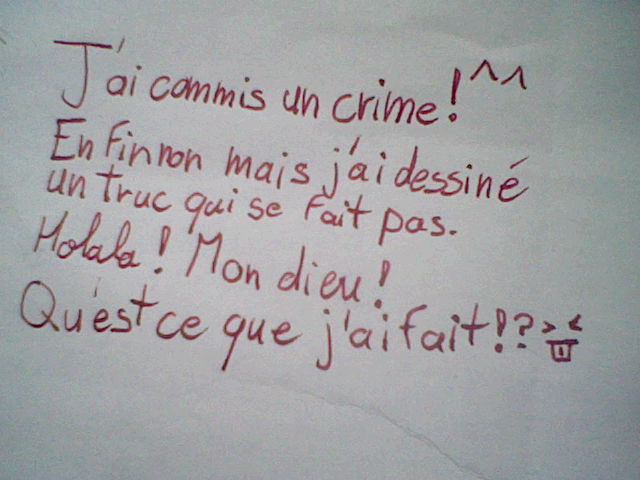 J'ai commis un crime! ^^
Enfin non mais j'ai dessiné
un truc qui se fait pas.
Holala! Mon dieu!
Qu'est ce que j'ai fait!? > <